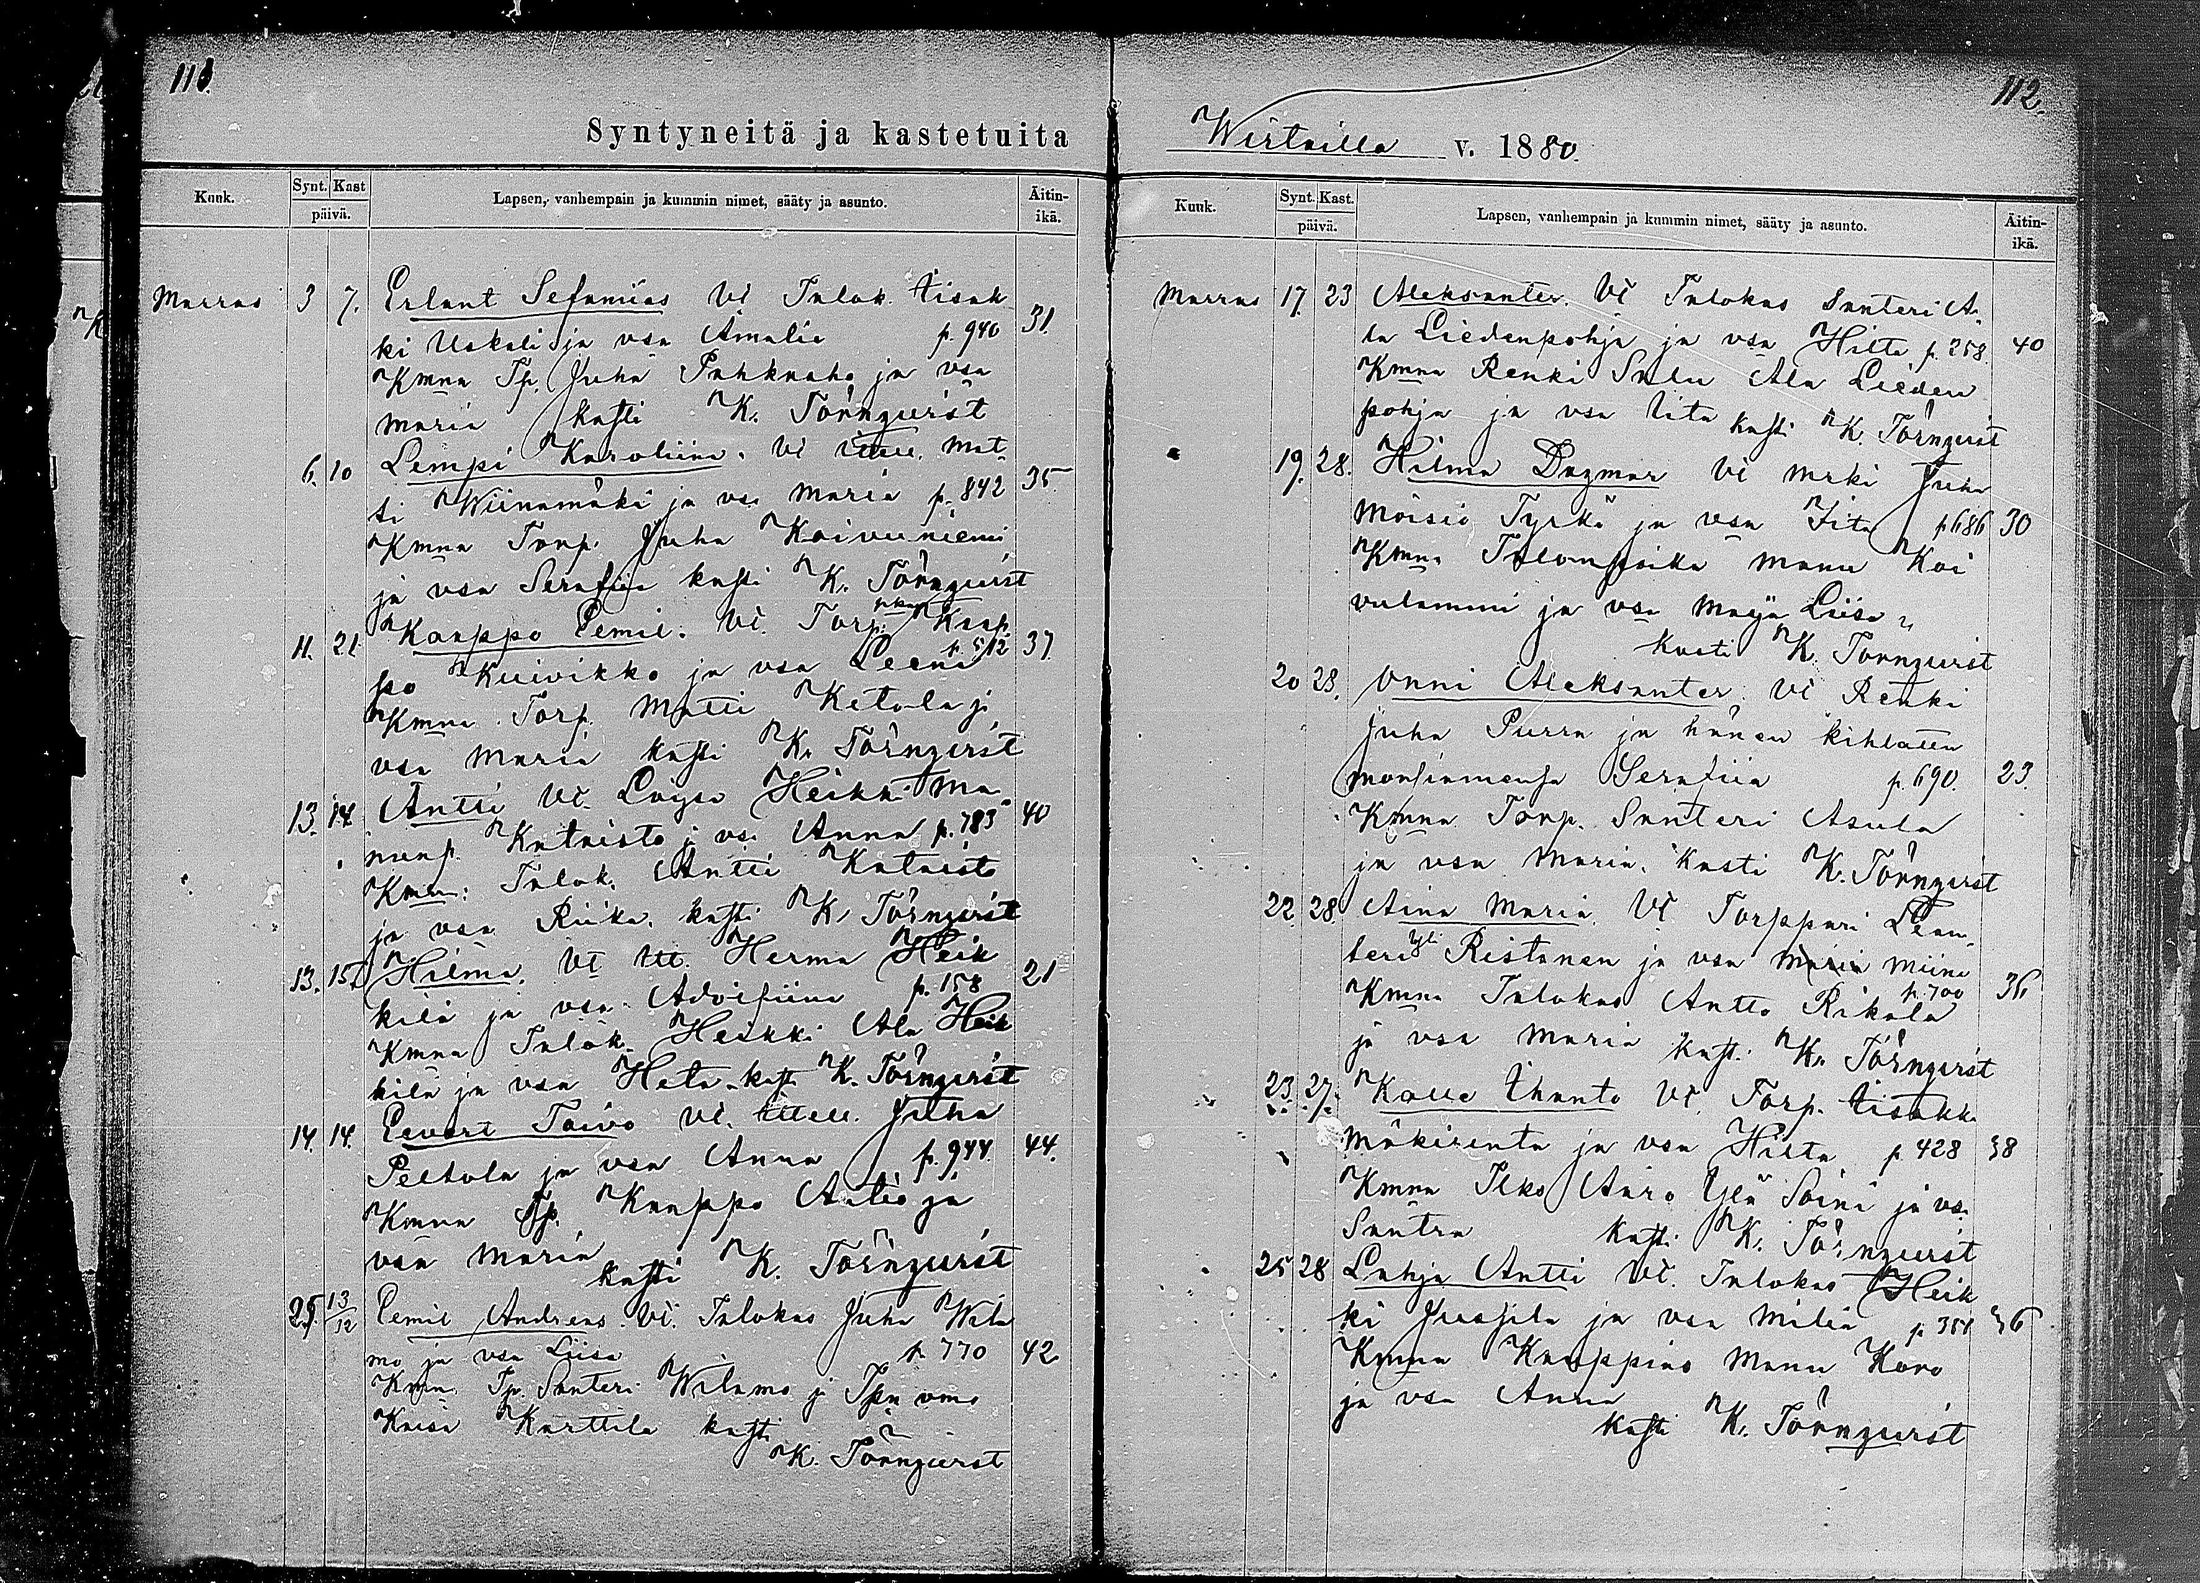 111.
Syntyneitä ja kastetuita
Kuuk. Synt. Kast päivä. Lapsen, vanhempain ja kummin nimet, sääty ja asunto. Äitin-ikä.
Marras 3 7. Erlant Sefanias Vt Talok. Iisak
ki Uskali ja vsa Amalia p. 940 31.
Kmna Tp. Juha Pahkaaho ja vsa
Maria kasti K. Törnqvist
6. 10 Lempi Karoliina. Vt Mat
ti Wiinamäki ja vsa Maria p. 842 35
Kmna Torp. Juha Koivuniemi
ja vsa Serafia kasti K. Törnqvist
11. 21 Kaappo Eemil. Vt. Torp. Kaap
po Kuivikko ja vsa Leena p. 512 37
Kmna Torp. Matti Ketola j.
vsa Maria kasti K. Törnqvist
13. 14 Antti Vt. Loysa Heikki Ma
Kataisto j vsa Anna p. 783 40
Kmna: Talok. Antti Kataisto
ja vsa Riika. kasti K. Törnqvist
13. 15 Hilma. Vt Itt. Herma Heik
kilä ja vsa Adolfiina p. 158 21
Kmna Talok. Heikki Ala Heik
kilä ja vsa Heta kasti K. Törnqvist
14. 14. Eevert Toivo Vt. Juha
Peltola ja vsa Anna p. 944. 44.
Kmna Tp. Kaappo Autio ja
vsa Maria
kasti K. Törnqvist
25. 13/12 Eemil Andreas. Vt. Talokas Juha Wila
mo ja vsa Liisa p. 770 42
Kmna Tp. Santeri Wilamo j Tpn vmo
Kaisa Karttila kasti
K. Törnqvist
112.
Wirtailla v. 1880.
Kuuk. Synt. Kast. päivä. Lapsen, vanhempain ja kummin nimet, sääty ja asunto. Äitin-ikä.
Marras 17. 23 Aleksanter. Vt Talokas Santeri A
la Liedenpohja ja vsa Hilta p. 258 40
Kmna Renki Salu Ala Lieden
pohja ja vsa Iita kasti K. Törnqvist
19. 28. Hilma Dagmar Vt Mrki Juha
Moisio Tyrkö ja vsa Iita p 686 30
Kmna Talonpoika Manu Koi
vulammi ja vsa Maija Liisa
kasti K. Törnqvist
20 28. Onni Aleksanter. Vt Renki
Juha Purra ja hänen kihlattu
morsiamensa Serafiia p. 690. 23.
Kmna Torp. Santeri Asula
ja vsa Maria. kasti K. Törnqvist
22. 28. Aina Maria Vt Torppari Lean
teri Yli Ristanen ja vsa Maria Miina
p. 700 36
Kmna Talokas Antto Rikala
ja vsa Maria kasti. K. Törnqvist
23. 27. Kalle Ihanto Vt. Torp. Iisakki
Mäkiranta ja vsa Hilta p 428 38
Kmna Ilko Aaro Ylä Soini ja vsa
Santra kasti K. Törnqvist
25 28 Lahja Antti Vt. Talokas Heik
ki Jussila ja vsa Milia p 351 36
Kmna Kauppias Manu Koro
ja vsa Anna
kasti K. Törnqvist